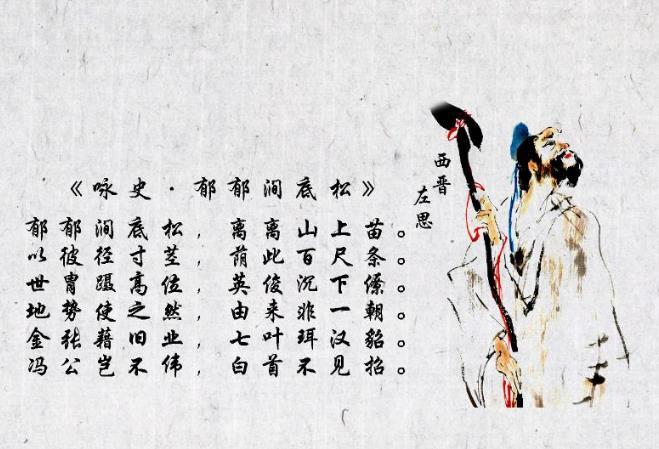 《咏史·郁郁涧底松》
西晋
左思
郁郁涧底松，离离山上苗。
以彼径寸茎，荫此百尺条。
世胄蹑高位，英俊沉下僚。
地势使之然，由来非一朝。
金张藉旧业，七叶珥汉貂。
冯公岂不伟，白首不见招。